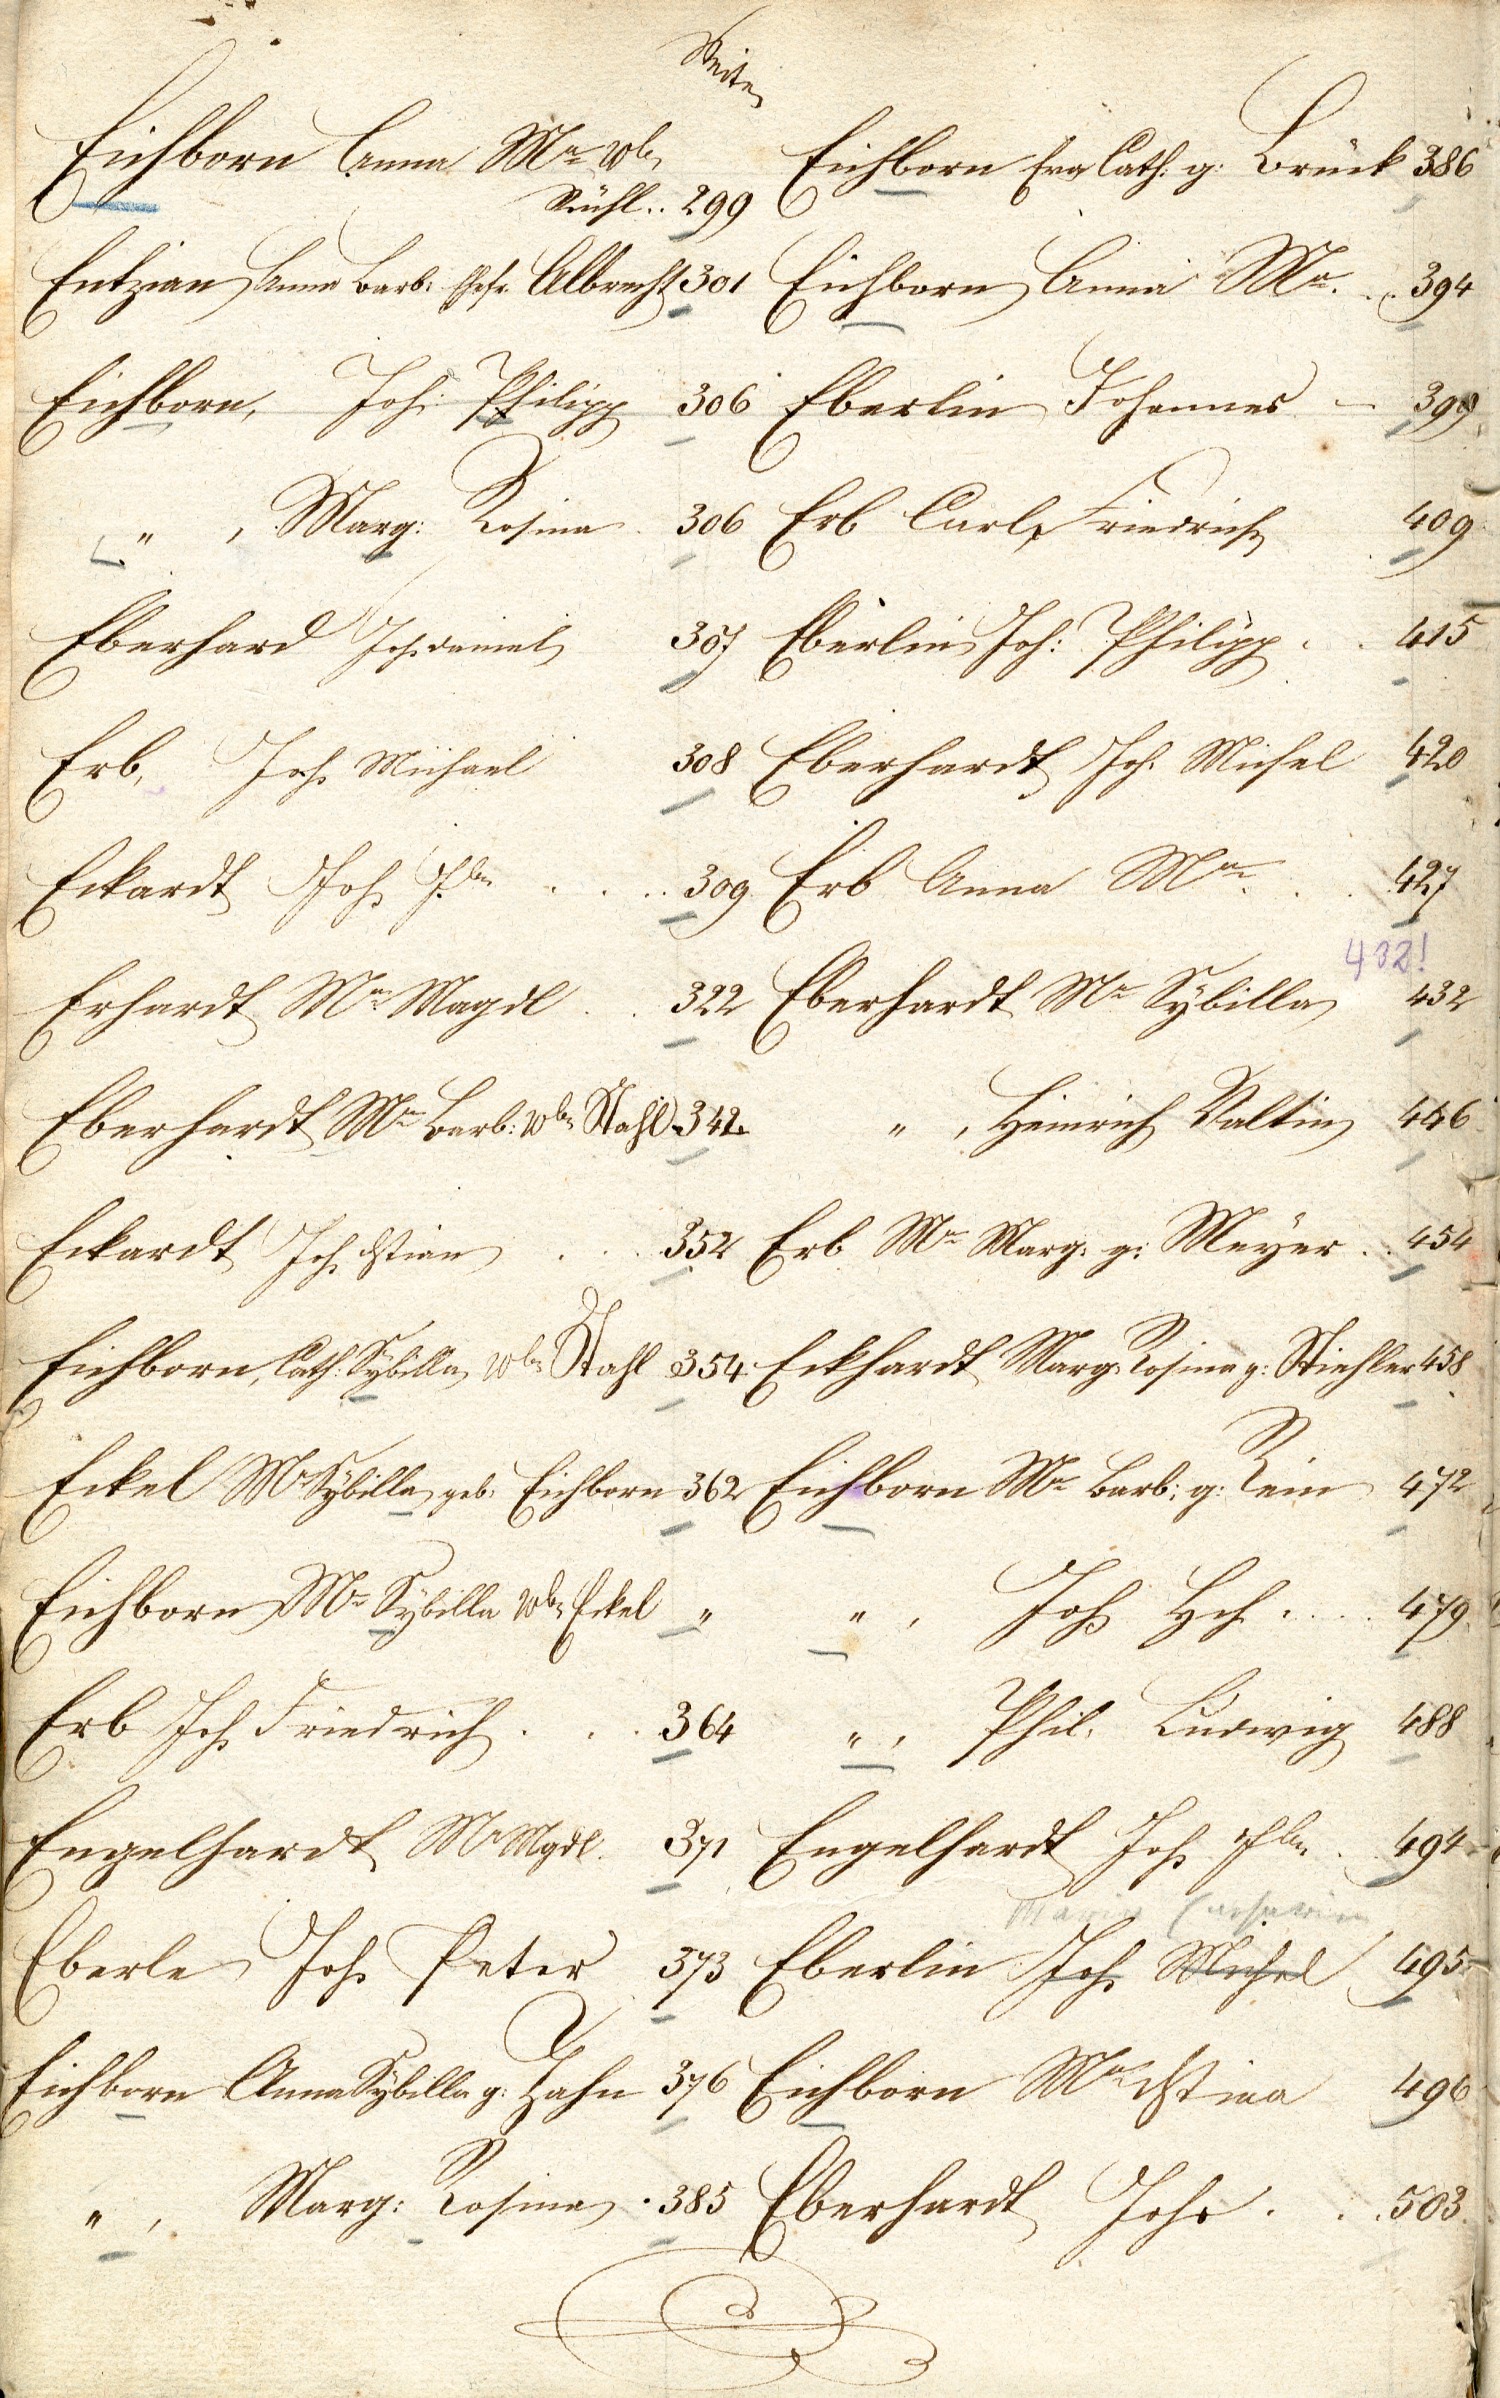 Seite
Eichborn Anna Ma Wb.
Rühl .. 299
Entzian Anna Barb: Ehefr. Albrecht 301
Eichborn, Joh: Philipp 306
" , Marg: Rosina 306
Eberhard Joh. Daniel 307
Erb, Joh. Michael 308
Eckardt Joh. . . . . 309
Erhardt Ma Magdl . . 322
Eberhardt Ma Barb: Wb. Stahl 342.
Eckardt Joh. Xstian . . . 352
Eichborn, Cath: Sybilla Wb. Stahl 354
Eckel Ma Sybilla geb. Eichborn 362
Eichborn Ma Sybilla Wb. Eckel "
Erb Joh. Friedrich . . . 364
Engelhardt Ma Mgdl. 371
Eberle Joh. Peter 373
Eichborn Anna Sybilla g: Zahn 376
" , Marg: Rosina . 385
Eichborn Eva Cath: g: Brück 386
Eichborn Anna Ma. . . 394
Eberlin Johannes — 399
Erb Carl Friedrich 409
Eberlin Joh: Philipp . . 415
Eberhardt Joh. Michel 420
Erb Anna Ma . . 427
432!
Eberhardt Ma Sybilla 432
" , Heinrich Valtin 446
Erb Ma Marg: g: Meyer . . 454
Eckhardt Marg: Rosina g: Stiehler 458
Eichborn Ma Barb: g: Rein 472
" , Joh. Hch. . . . . 479
" , Phil. Ludwig 488
Engelhardt Joh. . . 494
Maria Catharina
Eberlin Joh. Michel 495
Eichborn Ma Xstina 496
Eberhardt Johs . . . 503.